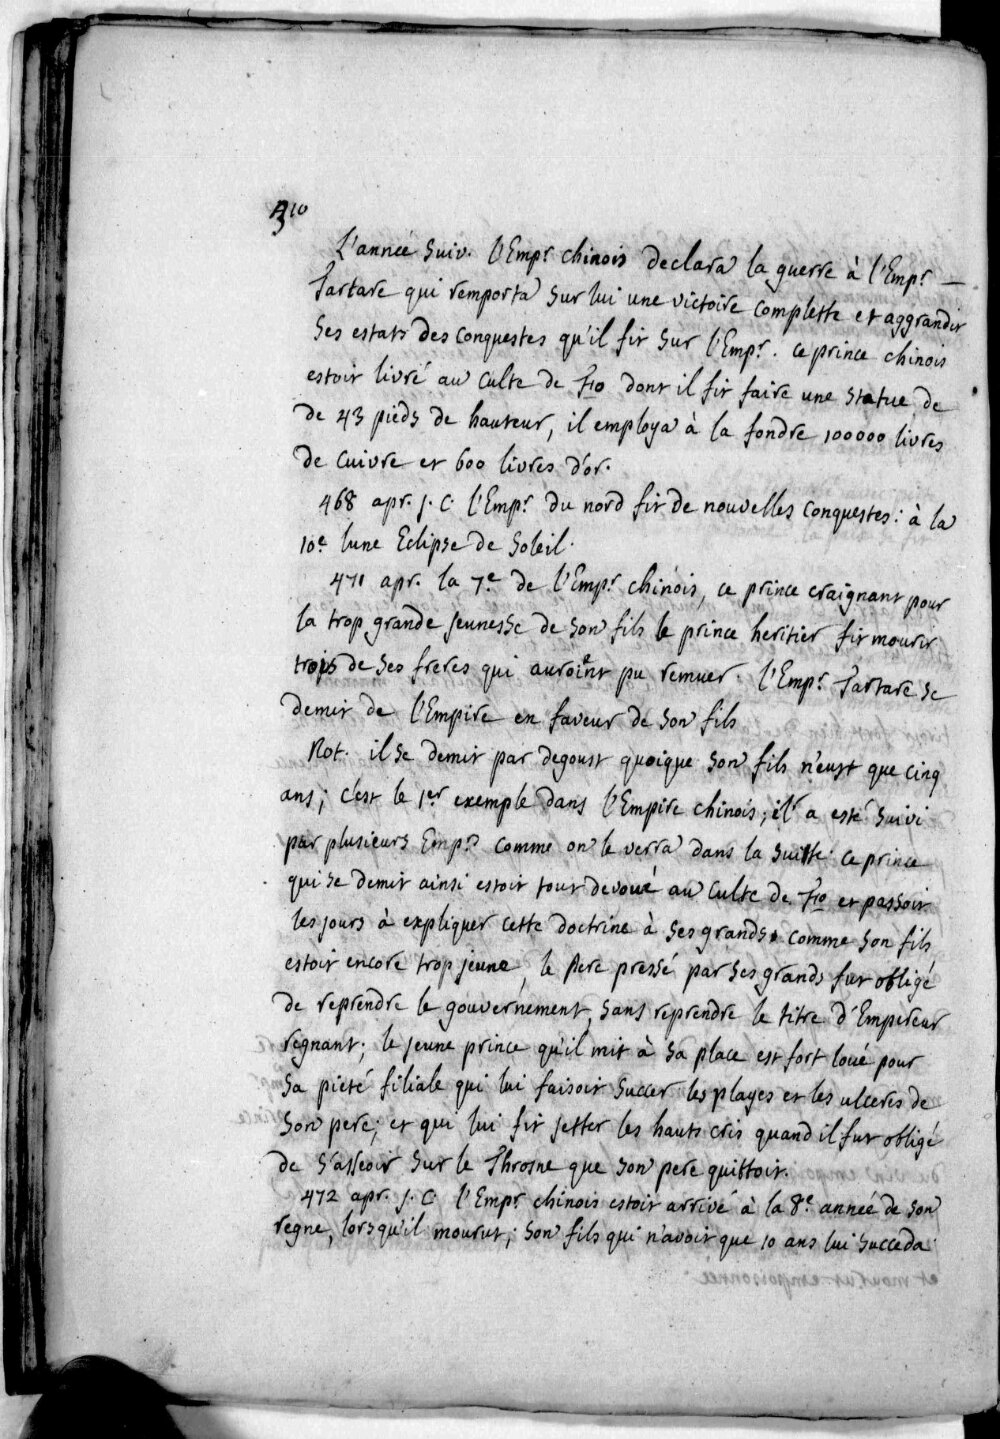 310
L'année suiv. l'Emp.r chinois declara la guerre à l'Emp.r —
Tartare qui remporta sur lui une victoire complette et aggrandit
ses estats des conquestes qu'il fit sur l'Emp.r. ce prince chinois
estoit livré au culte de Fo dont il fit faire une statue de
de 43 pieds de hauteur, il employa à la fondre 100000 livres
de cuivre et 600 livres d'or.
468 apr. J. C. l'Emp.r du nord fit de nouvelles conquestes: à la
10e lune Eclipse de Soleil.
471 apr. la 7.e de l'Emp.r chinois, ce prince craignant pour
la trop grande jeunesse de son fils le prince heritier fit mourir
trois de ses freres qui auroient pu remuer. l'Emp.r Tartare se
demit de l'Empire en faveur de son fils
Not. il se demit par degoust quoique son fils n'eust que cinq
ans; c'est le 1er exemple dans l'Empire chinois; il a esté suivi
par plusieurs Emp.rs comme on le verra dans la suitte. ce prince
qui se demit ainsi estoit tout devoué au culte de Fo et passoit
les jours à expliquer cette doctrine à ses grands. comme son fils
estoit encore trop jeune, le Pere pressé par ses grands fut obligé
de reprendre le gouvernement, sans reprendre le titre d'Empereur
regnant; le jeune prince qu'il mit à sa place est fort loué pour
sa pieté filiale qui lui faisoit succer les playes et les ulceres de
son pere; et qui lui fit jetter les hauts cris quand il fut obligé
de s'asseoir sur le Throsne que son pere quittoit.
472 apr. J. C. l'Emp.r chinois estoit arrivé à la 8.e année de son
regne, lorsqu'il mourut; son fils qui n'avoit que 10 ans lui succeda